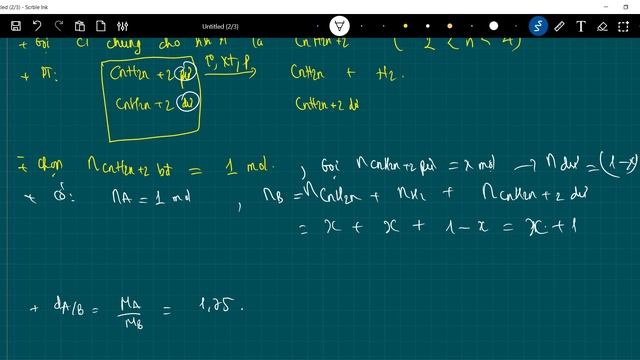 Untitled (2/3) - Scrble Ink
Untitled (2/3)
+ Gọi CT chung cho hh A là CnH2n+2 ( 2 < n < 4 )
+ PT: CnH2n+2 pứ t°, xt, p → CnH2n + H2.
CnH2n+2 dư CnH2n+2 dư
+ Chọn nCnH2n+2 bđ = 1 mol. , Gọi nCnH2n+2 pứ = x mol → n dư = (1-x)
+ Có: nA = 1 mol , nB = nCnH2n + nH2 + nCnH2n+2 dư
= x + x + 1 - x = x + 1
+ dA/B = MA/MB = 1,75.